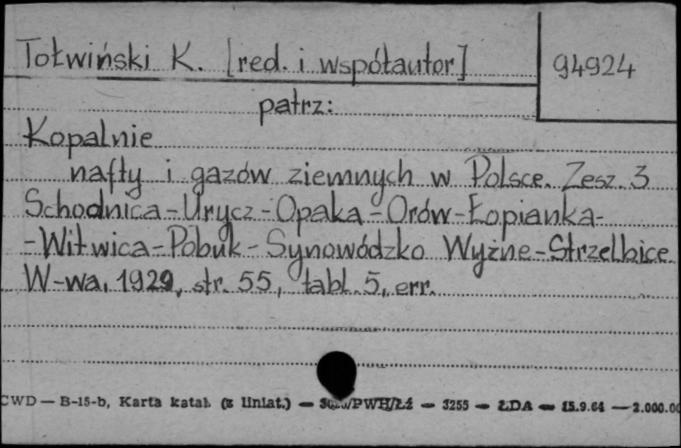 Tołwiński K. [red. i współautor]
94924
patrz:
Kopalnie
nafty i gazów ziemnych w Polsce. Zesz. 3
Schodnica-Urycz-Opaka-Orów-Łopianka-
-Witwica-Pobuk-Synowódzko Wyżne-Strzelbice
W-wa, 1929, str. 55, tabl. 5, err.
CWD — B-15-b, Karta katal. (z liniat.) — /PWH/Łź — 3255 — ŁDA — 15.9.64 — 2.000.00